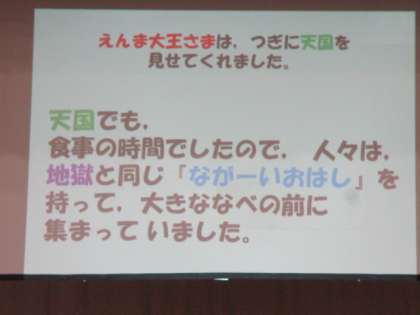 えんま大王さまは，つぎに天国を
見せてくれました。
天国でも，
食事の時間でしたので， 人々は，
地獄と同じ『ながーいおはし』を
持って，大きななべの前に
集まって いました。